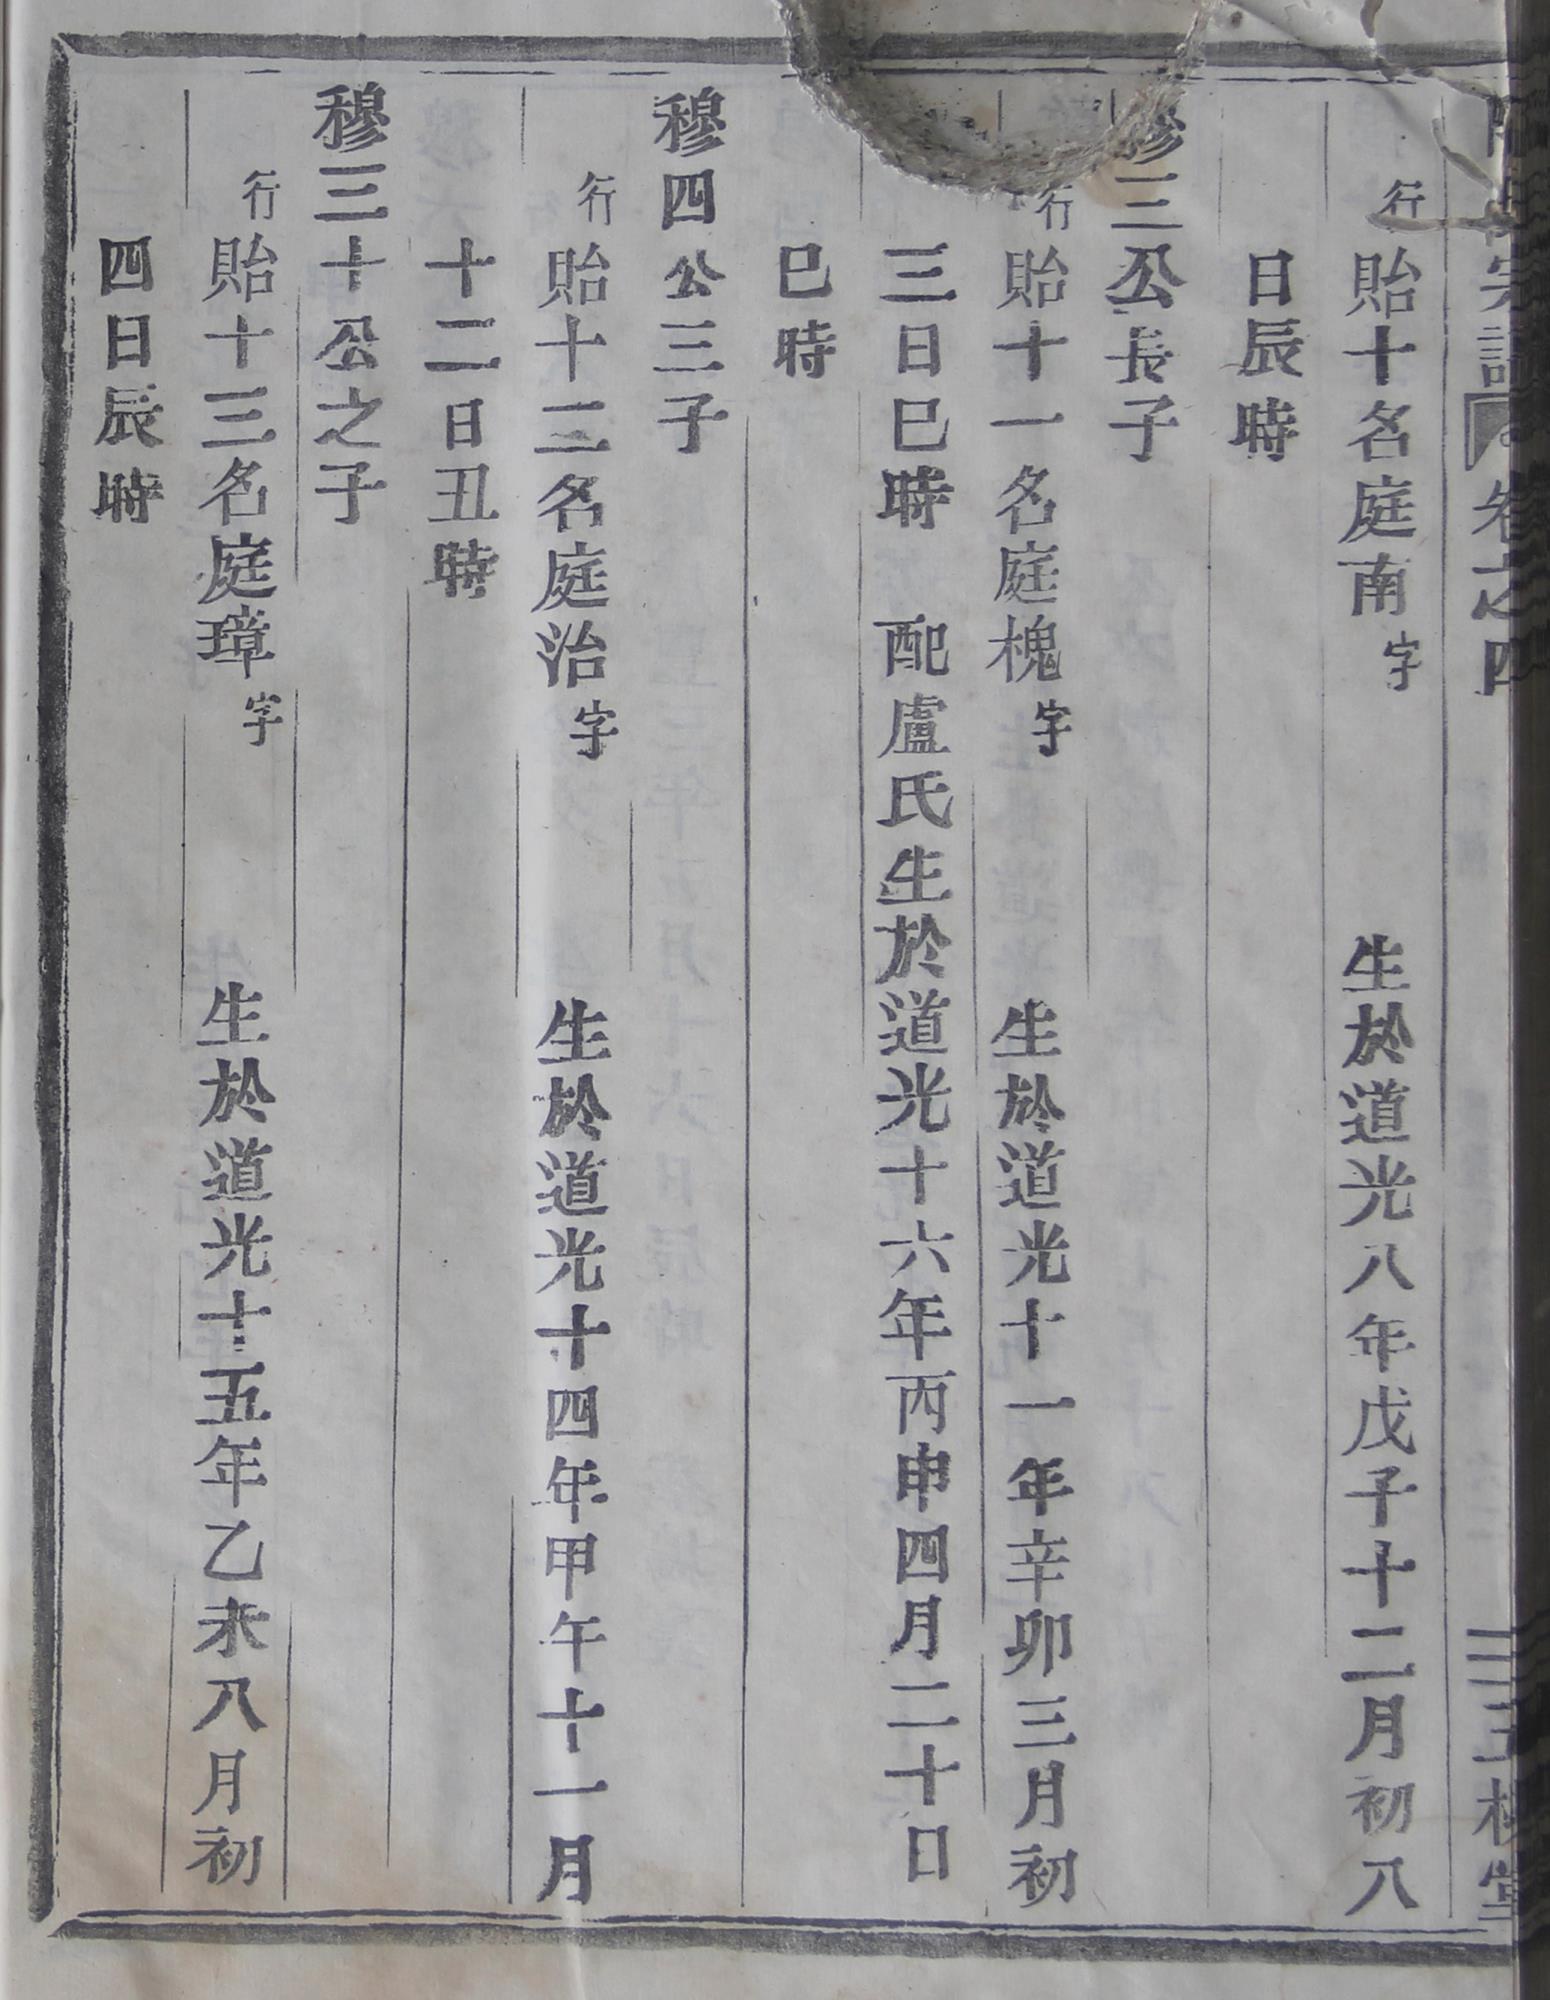 宗譜 卷之四 三槐堂
行貽十名庭南字 生於道光八年戊子十二月初八
日辰時
穆三公長子
行貽十一名庭槐字 生於道光十一年辛卯三月初
三日巳時 配盧氏生於道光十六年丙申四月二十日
巳時
穆四公三子
行貽十二名庭治字 生於道光十四年甲午十一月
十二日丑時
穆三十公之子
行貽十三名庭璋字 生於道光十五年乙未八月初
四日辰時